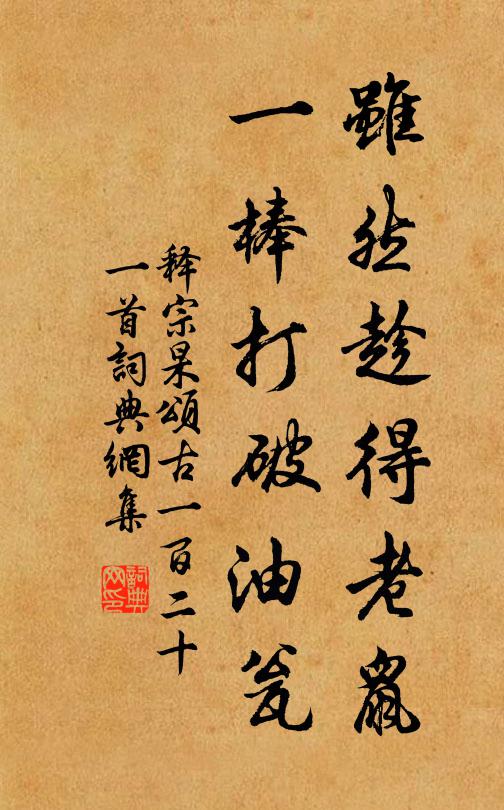 雖然趁得老鼠
一棒打破油瓮
释宗杲頌古一百二十
一首詞典網集
詞典網印